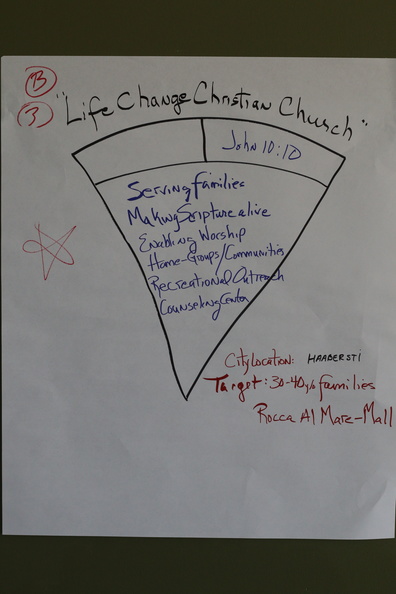 B
3
"Life Change Christian Church"
John 10:10
Serving families
Making Scripture alive
Enabling Worship
Home-Groups/Communities
Recreational Outreach
Counseling Center
City Location: HAABERSTI
Target: 30-40y/o families
Rocca Al Mare-Mall